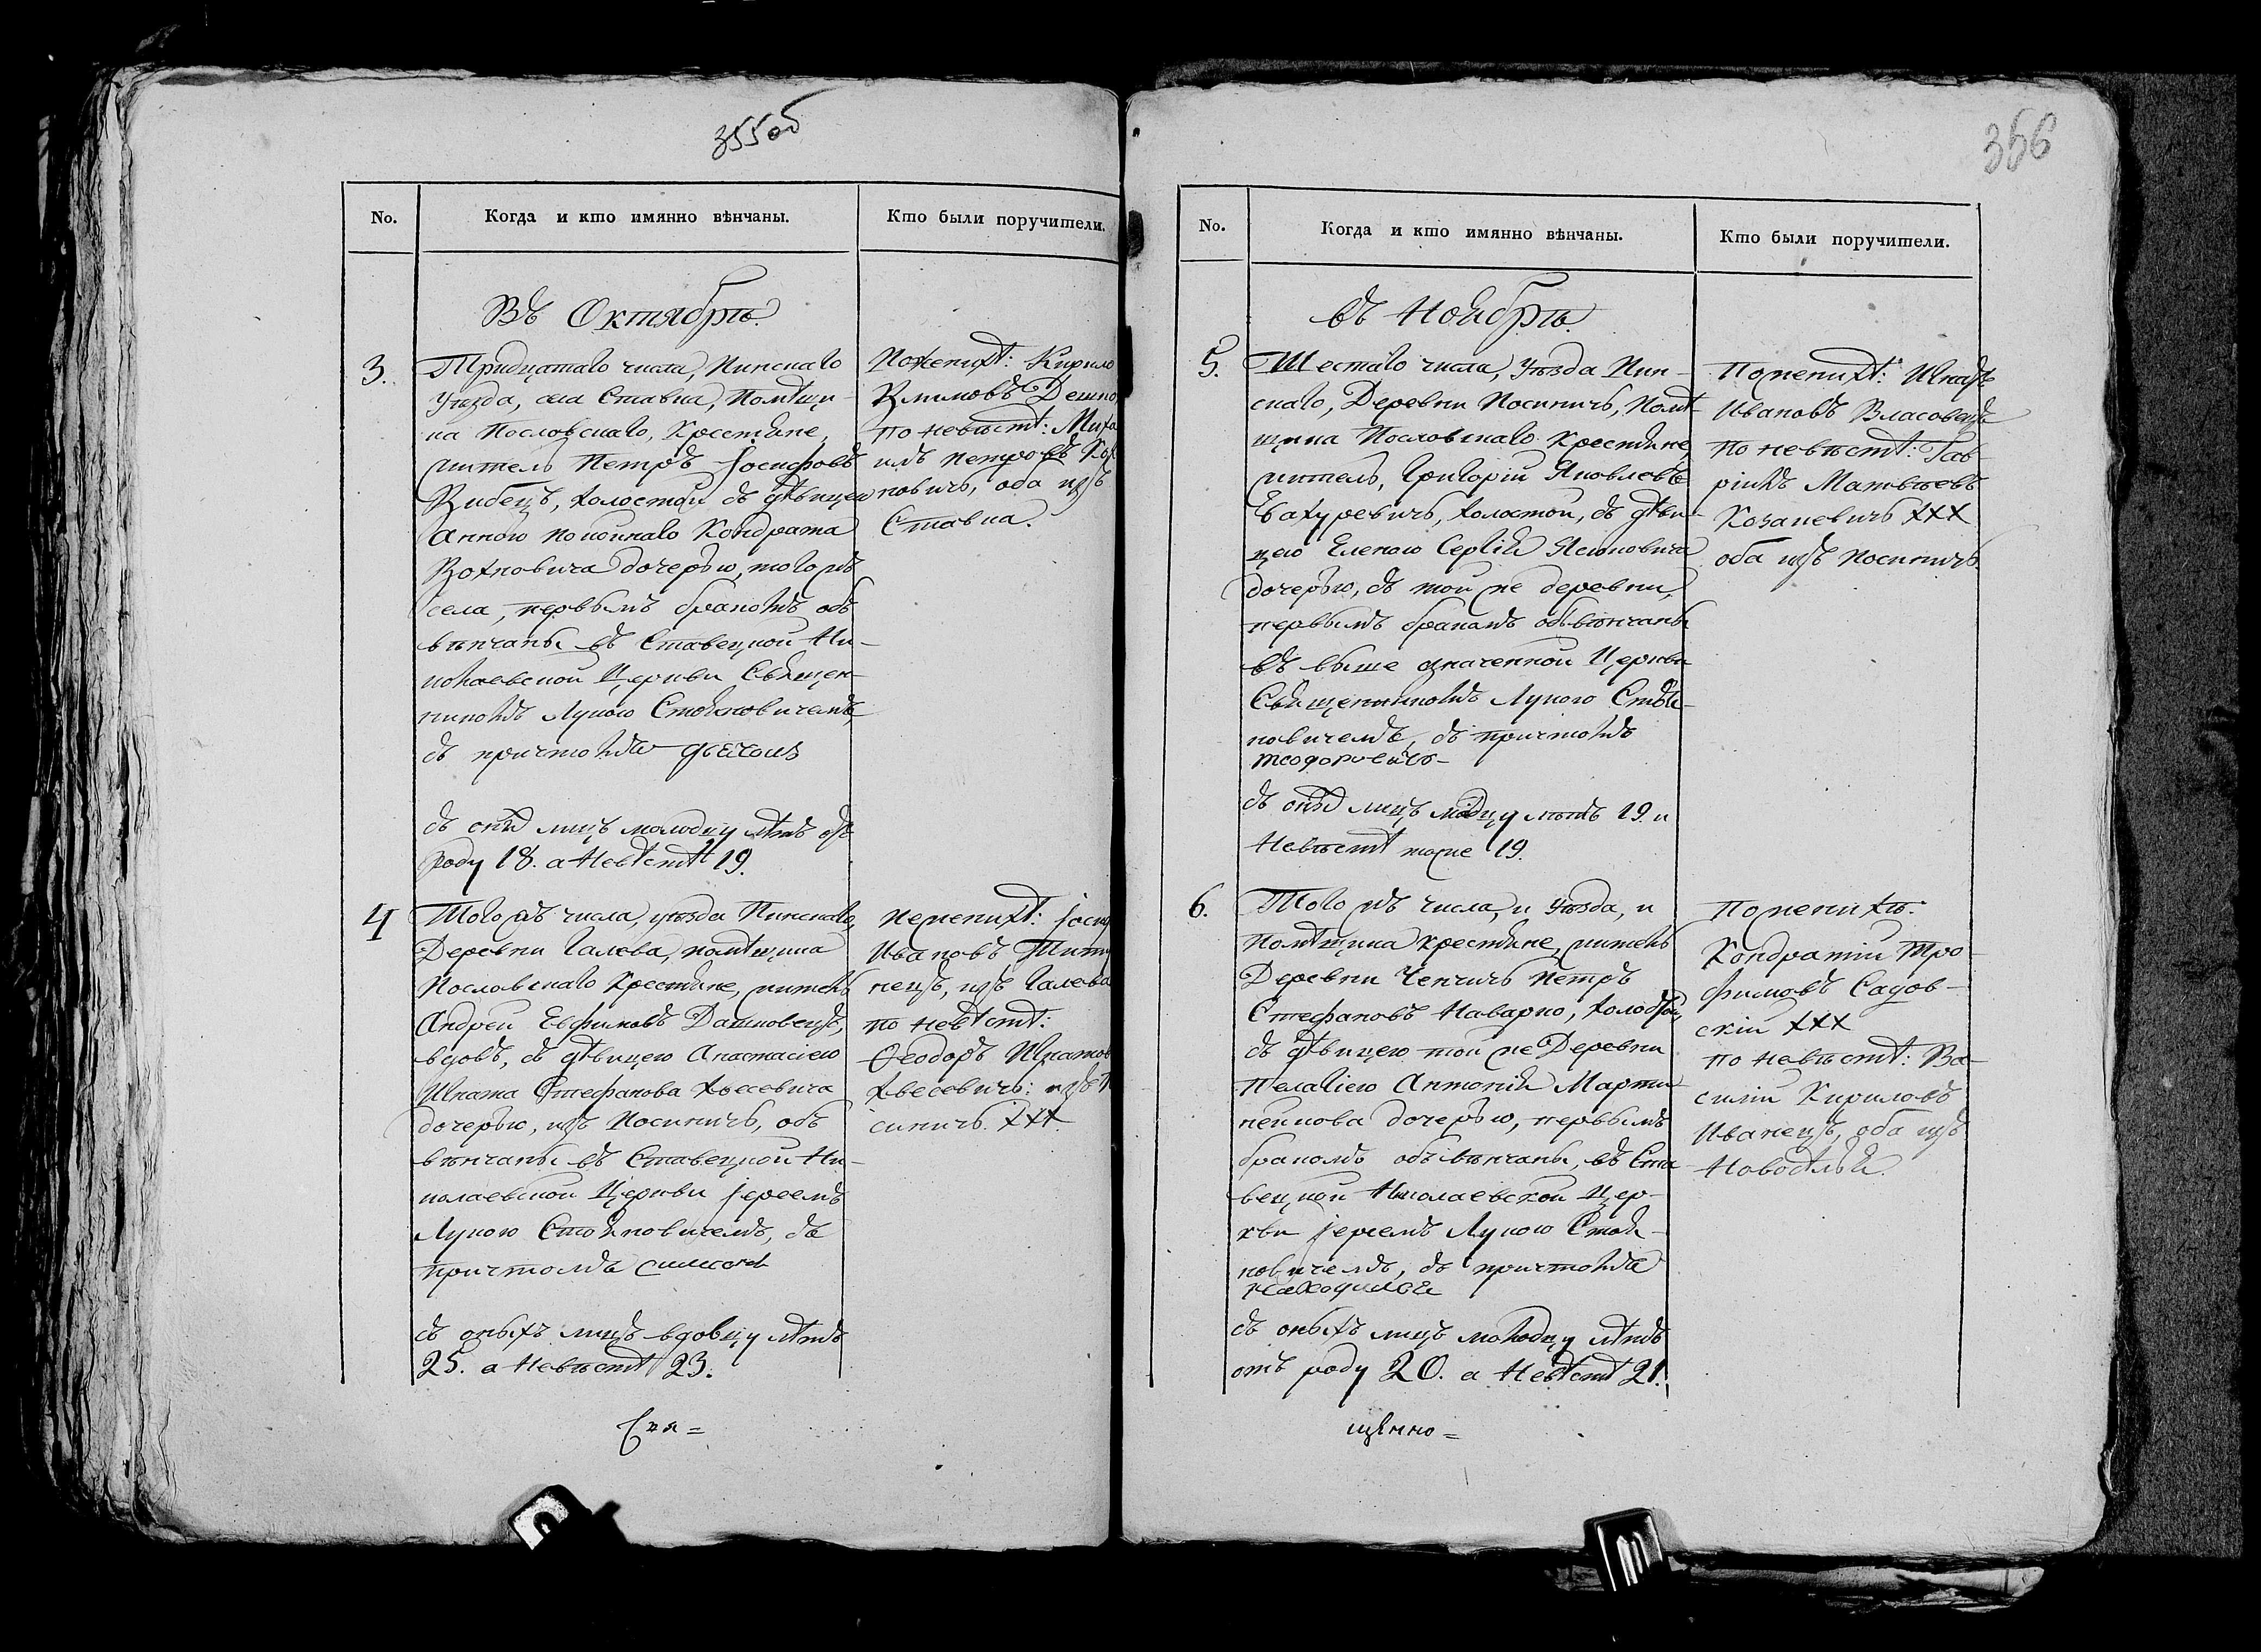 355 об
No.
Когда и кто имянно вѣнчаны.
Кто были поручители.
Въ Октябрѣ.
3.
Тридцатаго числа, Пинскаго
Уѣзда, села Ставка, Помѣщи-
ка Пословскаго, Крестьяне,
житель Петръ Іосифовъ
холостый съ дѣвицею
Анною покойнаго Кондрата
Вохновича дочерью, тогожъ
села, первымъ бракомъ об
вѣнчаны въ Ставецкой Ни-
колаевской Церкви Священ-
никомъ Лукою Стояновичемъ,
съ причтомъ
съ онѣхъ лицъ молодцу лѣтъ отъ
роду 18. а Невѣстѣ 19.
По женихѣ: Кирило
Климовъ
по невѣстѣ: Миха
илъ Петровъ
новичъ, оба изъ
Ставка.
4
Того жъ числа, уѣзда Пинскаго,
Деревни Галева, помѣщика
Пословскаго Крестьяне, житель
Андрей Евфимовъ Дашковецъ,
вдовъ, съ дѣвицею Анастасіею
Игната Стефанова Хвесевича
дочерью, изъ Посиничъ, об
вѣнчаны въ Ставецкой Ни-
колаевской Церкви іереемъ
Лукою Стояновичемъ, съ
причтомъ
съ оныхъ лицъ вдовцу лѣтъ
25. а Невѣстѣ 23.
По женихѣ:
Ивановъ
нецъ, изъ Галева
по невѣстѣ:
Ѳеодоръ Игнатов
Хвесевичъ: изъ П
синичъ. ХХХ
Свя=
356
No.
Когда и кто имянно вѣнчаны.
Кто были поручители.
въ Ноябрѣ.
5.
Шестаго числа, Уѣзда Пин-
скаго, Деревни Посиничъ, Помѣ-
щика Пословскаго Крестьяне,
житель, Григорій Яковлевъ
холостой, съ дѣви-
цею Еленою Сергія Ясюковича
дочерью, съ той же деревни,
первымъ бракомъ обвѣнчаны
въ выше означенной Церкви
Священникомъ Лукою Стоя-
новичемъ, съ причтомъ
съ онѣхъ лицъ молодцу лѣтъ 19. и
Невѣстѣ тоже 19.
По женихѣ: Игнатъ
Ивановъ Власовецъ
по невѣстѣ: Гав-
ріилъ Матвѣевъ
Козакевичъ ХХХ
оба изъ Посиничъ.
6.
Того жъ числа, и Уѣзда, и
Помѣщика крестьяне, житель
Деревни Ченчичъ Петръ
Стефановъ Наварко, холостой,
съ дѣвицею той же Деревни
Пелагіею Антонія Марти-
нейкова дочерью, первымъ
бракомъ обвѣнчаны, въ Ста-
вецкой Николаевской Цер-
кви іереемъ Лукою Стоя-
новичемъ, съ причтомъ
съ оныхъ лицъ молодцу лѣтъ
отъ роду 20. а Невѣстѣ 21.
По женихѣ:
Кондратій Тро-
фимовъ Садов-
скій ХХХ
по невѣстѣ: Ва-
силій Кириловъ
Иванецъ, оба изъ
Новоселья.
щенно=